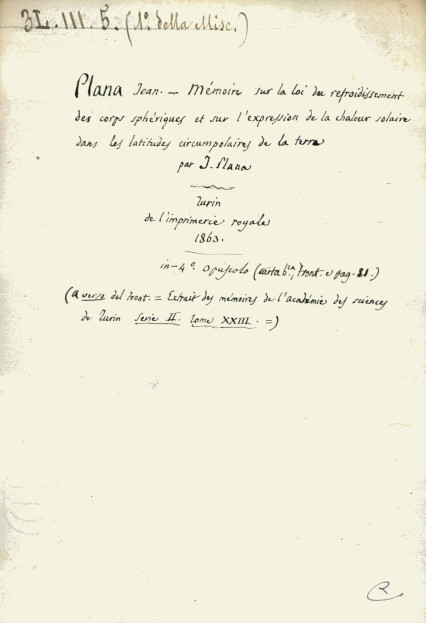 3L.III.5. (1º della Misc.)
Plana Jean. — Mémoire sur la loi du refroidissement
des corps sphériques et sur l'expression de la chaleur solaire
dans les latitudes circumpolaires de la terre
par J. Plana
Turin
de l'imprimerie royale
1863.
in-4º. opuscolo (carta bca, front. e pag. 81.)
(a verso del front. = Extrait des mémoires de l'académie des sciences
de Turin Serie II. tome XXIII. =)